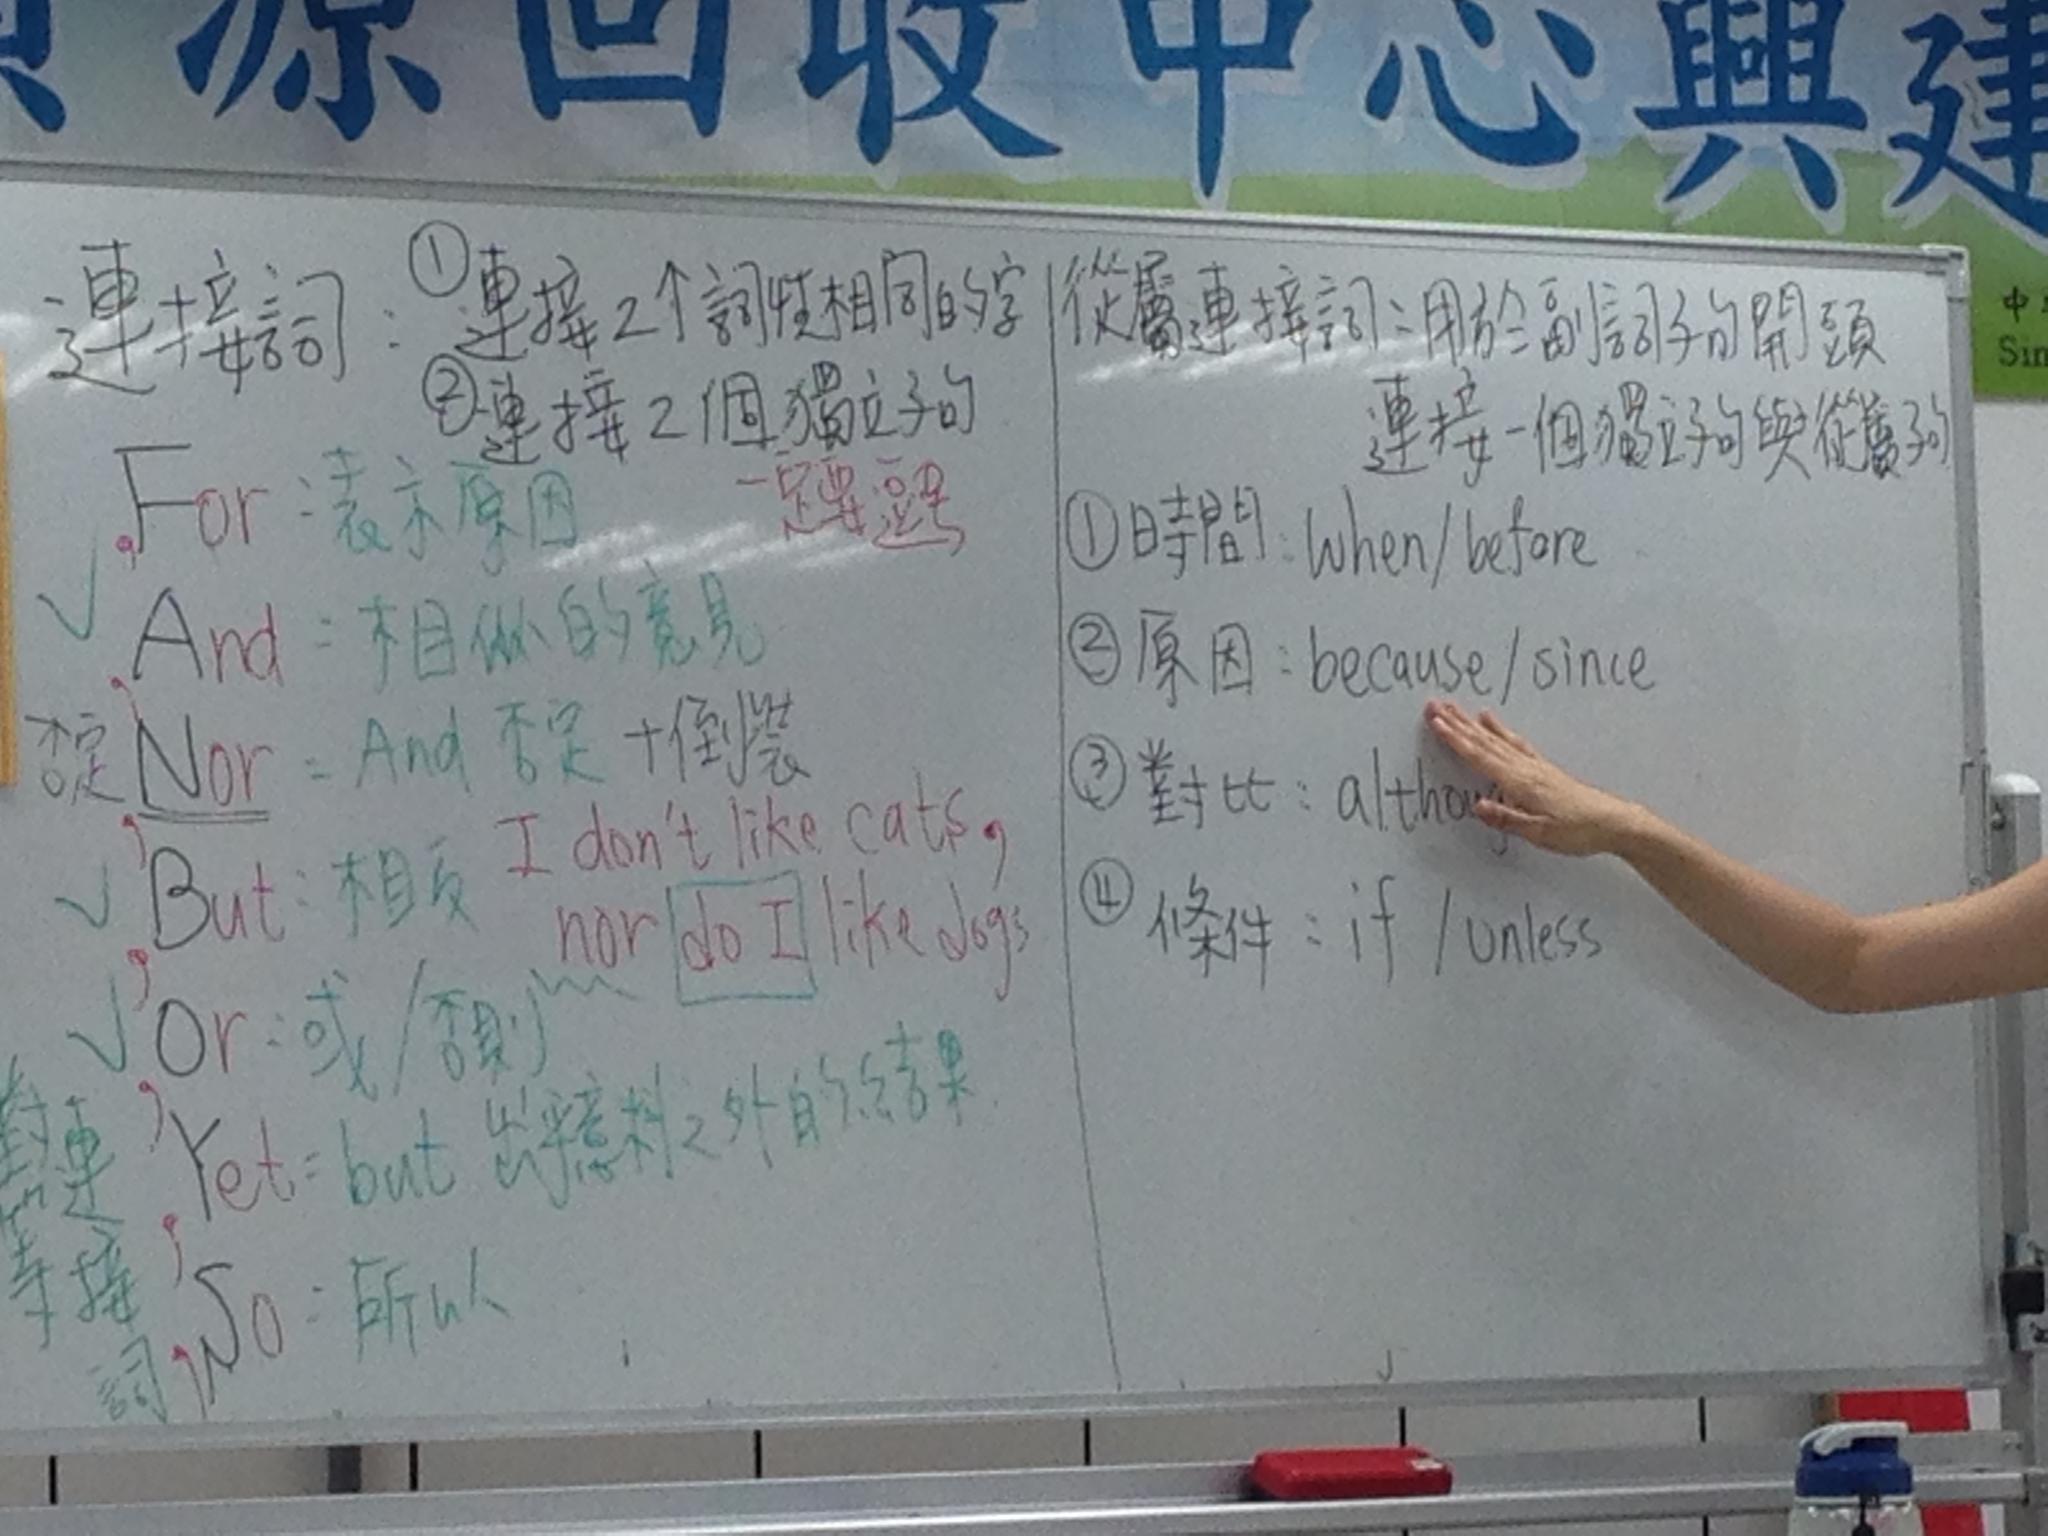 源回收中心興建
連接詞：①連接2个詞性相同的字
②連接2個獨立子句
一定要逗號
For：表示原因
✓ And = 相似的意見
否定 Nor = And 否定 +倒裝
I don't like cats,
nor do I like dogs
✓ But：相反
✓ Or：或/否則
Yet = but 出乎意料之外的結果
So：所以
對等
連接詞
從屬連接詞：用於副詞子句開頭
連接一個獨立子句與從屬子句
①時間：when/before
②原因：because/since
③對比：althoug
④條件：if /unless
中
Sin